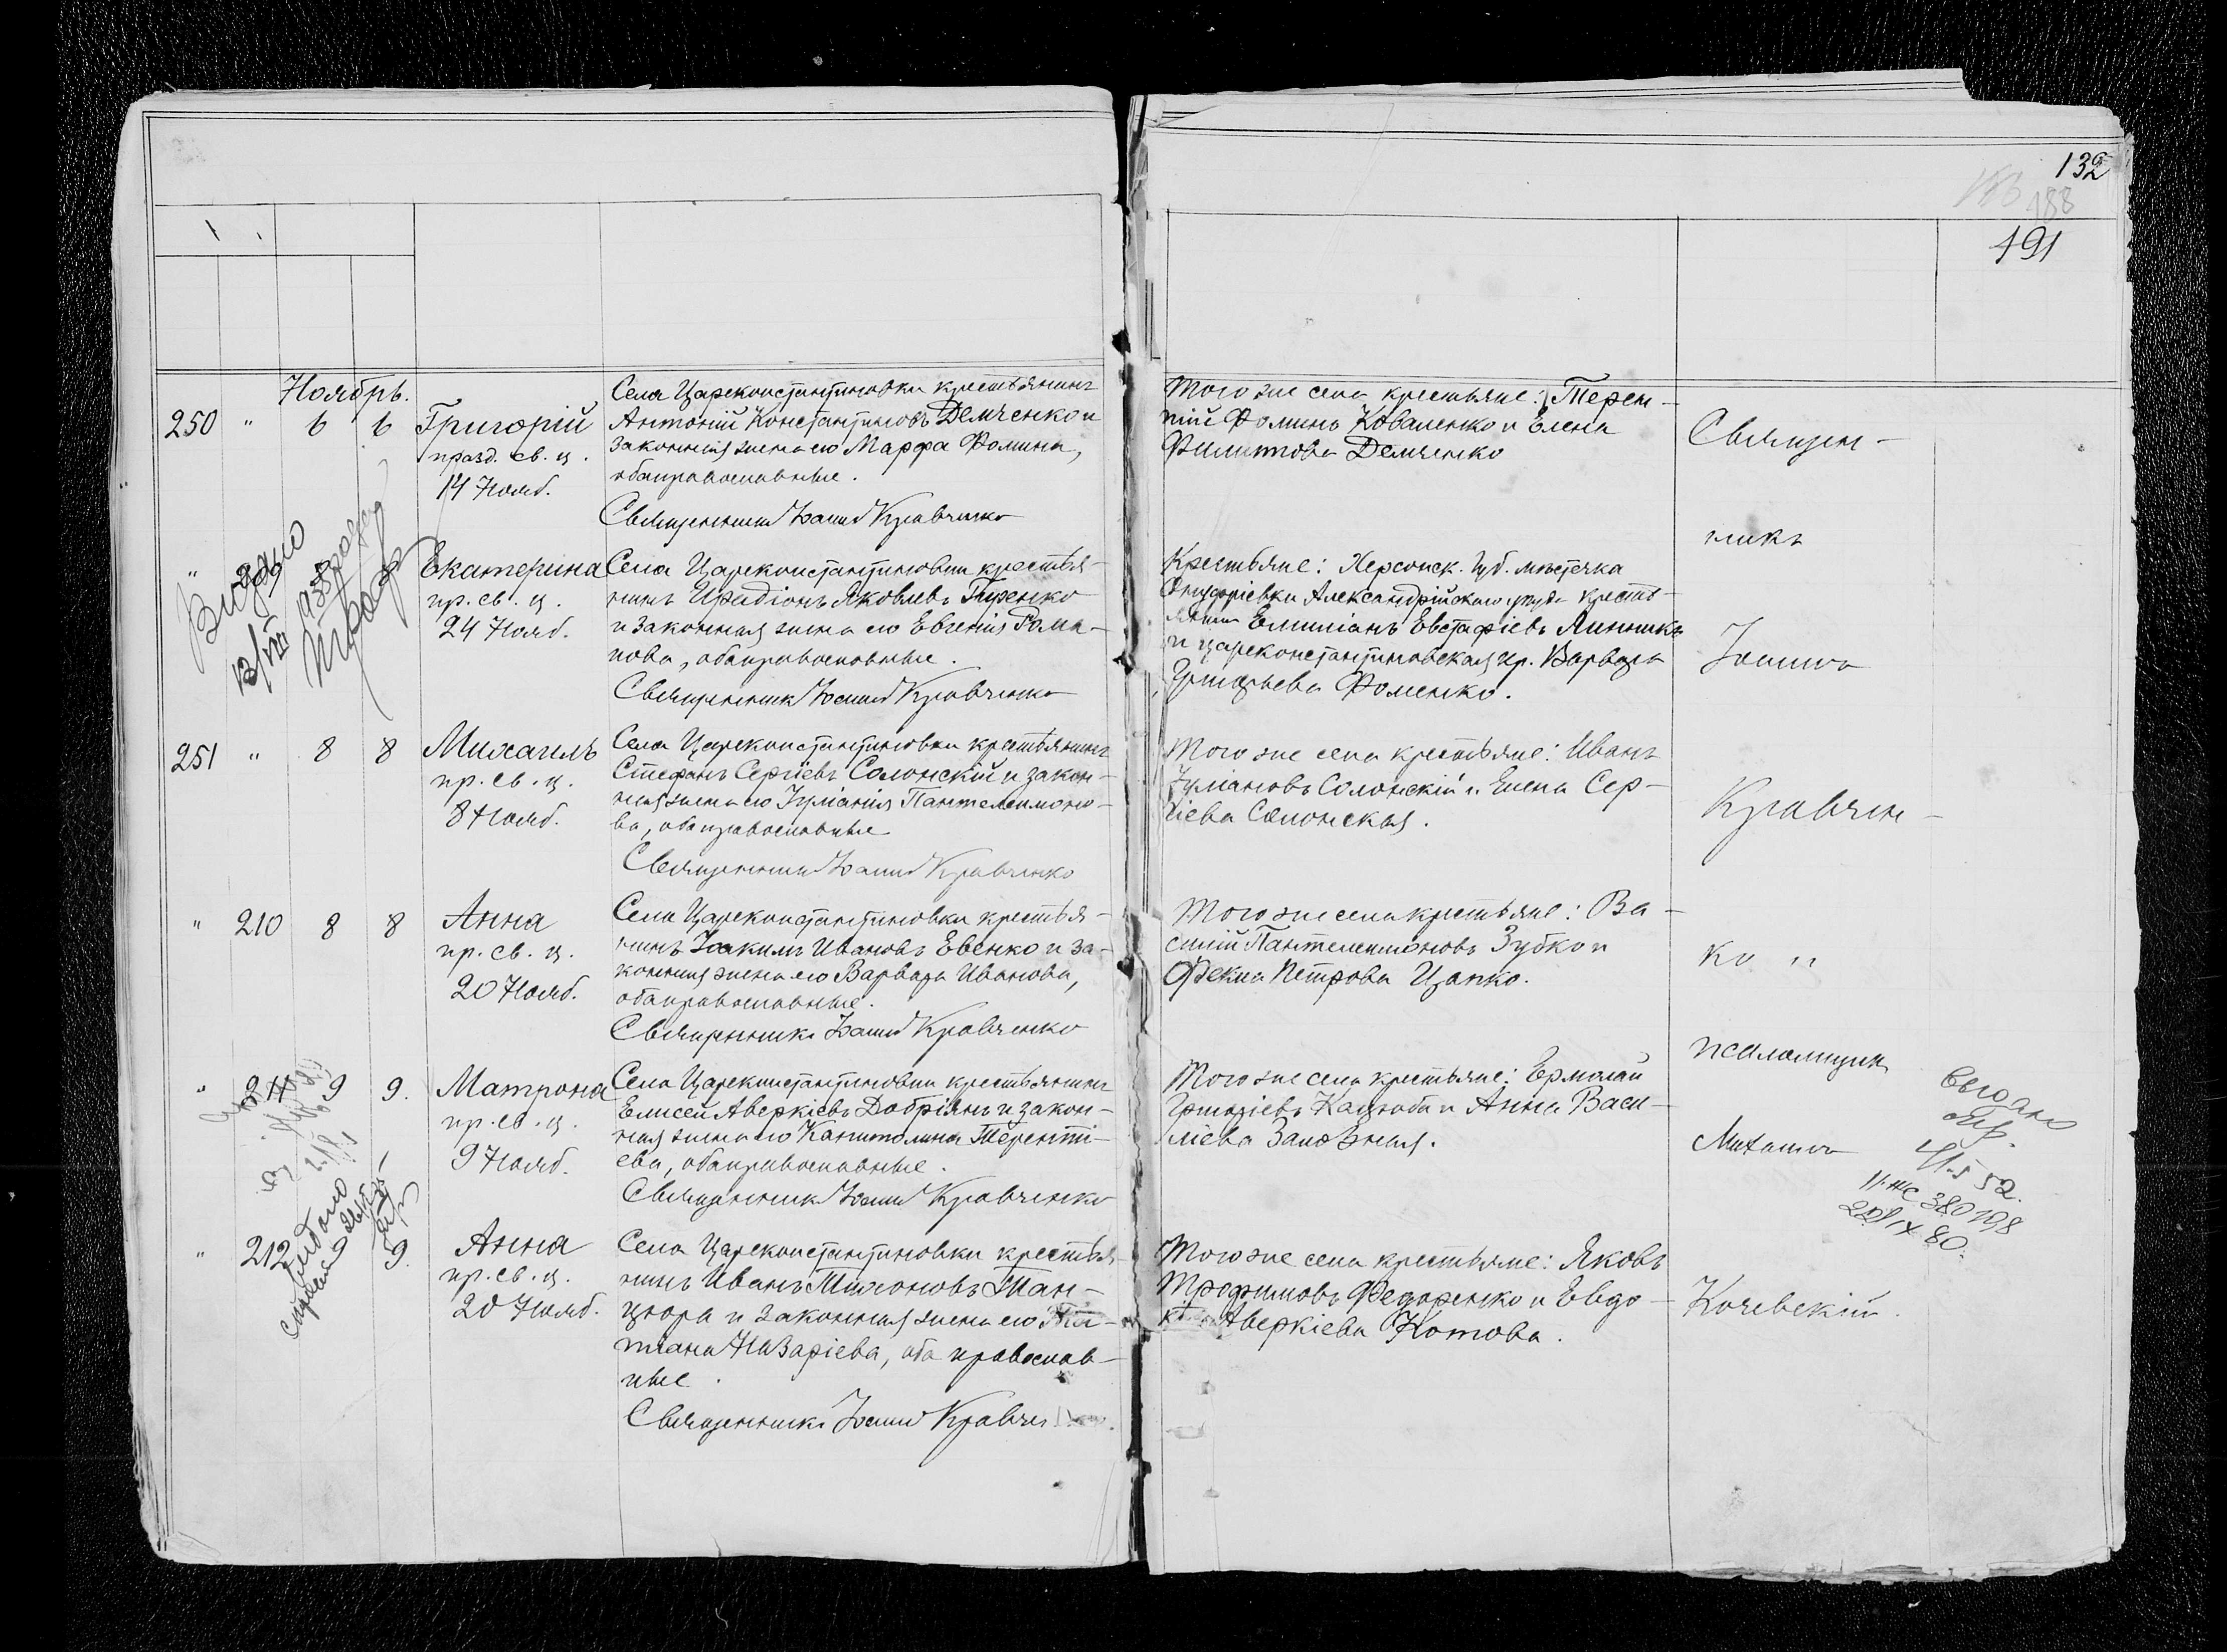 132
188
191
Ноябрь.
250 " 6 6 Григорій
празд. св. ц.
14 Нояб.
Села Цареконстантиновки крестьянинъ
Антоній Константиновъ Демченко и
законная жена его Марфа Фомина,
оба православные.
Священникъ Іоаннъ Кравченко
Того же села крестьяне: Терен-
тій Фоминъ Коваленко и Елена
Филиппова Демченко
Священ-
никъ
Выдано
" Екатерина
пр. св. ц.
24 Нояб.
Села Цареконстантиновки крестья-
нинъ Иродіонъ Яковлевъ Гиренко
и законная жена его Евгенія Рома-
нова, оба православные.
Священникъ Іоаннъ Кравченко
Крестьяне: Херсонск. губ. мѣстечка
Онуфріевки Александрійскаго уѣзда кресть-
янинъ Емиліанъ Евстафіевъ
и цареконстантиновская кр. Варвара
Григорьева Фоменко.
Іоаннъ
251 " 8 8 Михаилъ
пр. св. ц.
8 Нояб.
Села Цареконстантиновки крестьянинъ
Стефанъ Сергіевъ Солонскій и закон-
ная жена его Іуліанія Пантелеимоно-
ва, оба православные
Священникъ Іоаннъ Кравченко
Того же села крестьяне: Иванъ
Іуліановъ Солонскій и Елена Сер-
гіева Солонская.
Кравчен-
" 210 8 8 Анна
пр. св. ц.
20 Нояб.
Села Цареконстантиновки крестья-
нинъ Іоакимъ Ивановъ Евенко и за-
конная жена его Варвара Иванова,
оба православные.
Священникъ Іоаннъ Кравченко
Того же села крестьяне: Ва-
силій Пантелеимоновъ Зубко и
Фекла Петрова Цапко.
ко и
псаломщик
" 211 9 9. Матрона
пр. св. ц.
9 Нояб.
Села Цареконстантиновки крестьянинъ
Елисей Аверкіевъ Добріянъ и закон-
ная жена его Капитолина Теренті-
ева, оба православные.
Священникъ Іоаннъ Кравченко
Того же села крестьяне: Ермолай
Григоріевъ и Анна Васи-
ліева
52.
380198
80.
" 212 9 9. Анна
пр. св. ц.
20 Нояб.
Села Цареконстантиновки крестья-
нинъ Иванъ Тихоновъ Тан-
цюра и законная жена его Та-
тіана Назаріева, оба православ-
ные.
Священникъ Іоаннъ
Того же села крестьяне: Яковъ
Трофимовъ Федоренко и Евдо-
Аверкіева Котова.
Кочевскій.